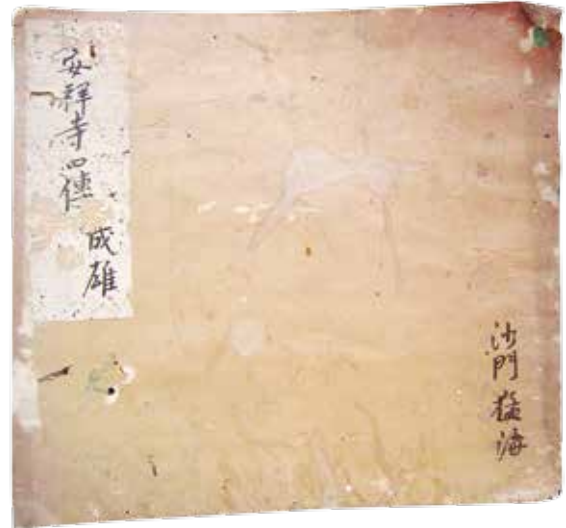 安祥寺四傳 成雄
沙門猛海